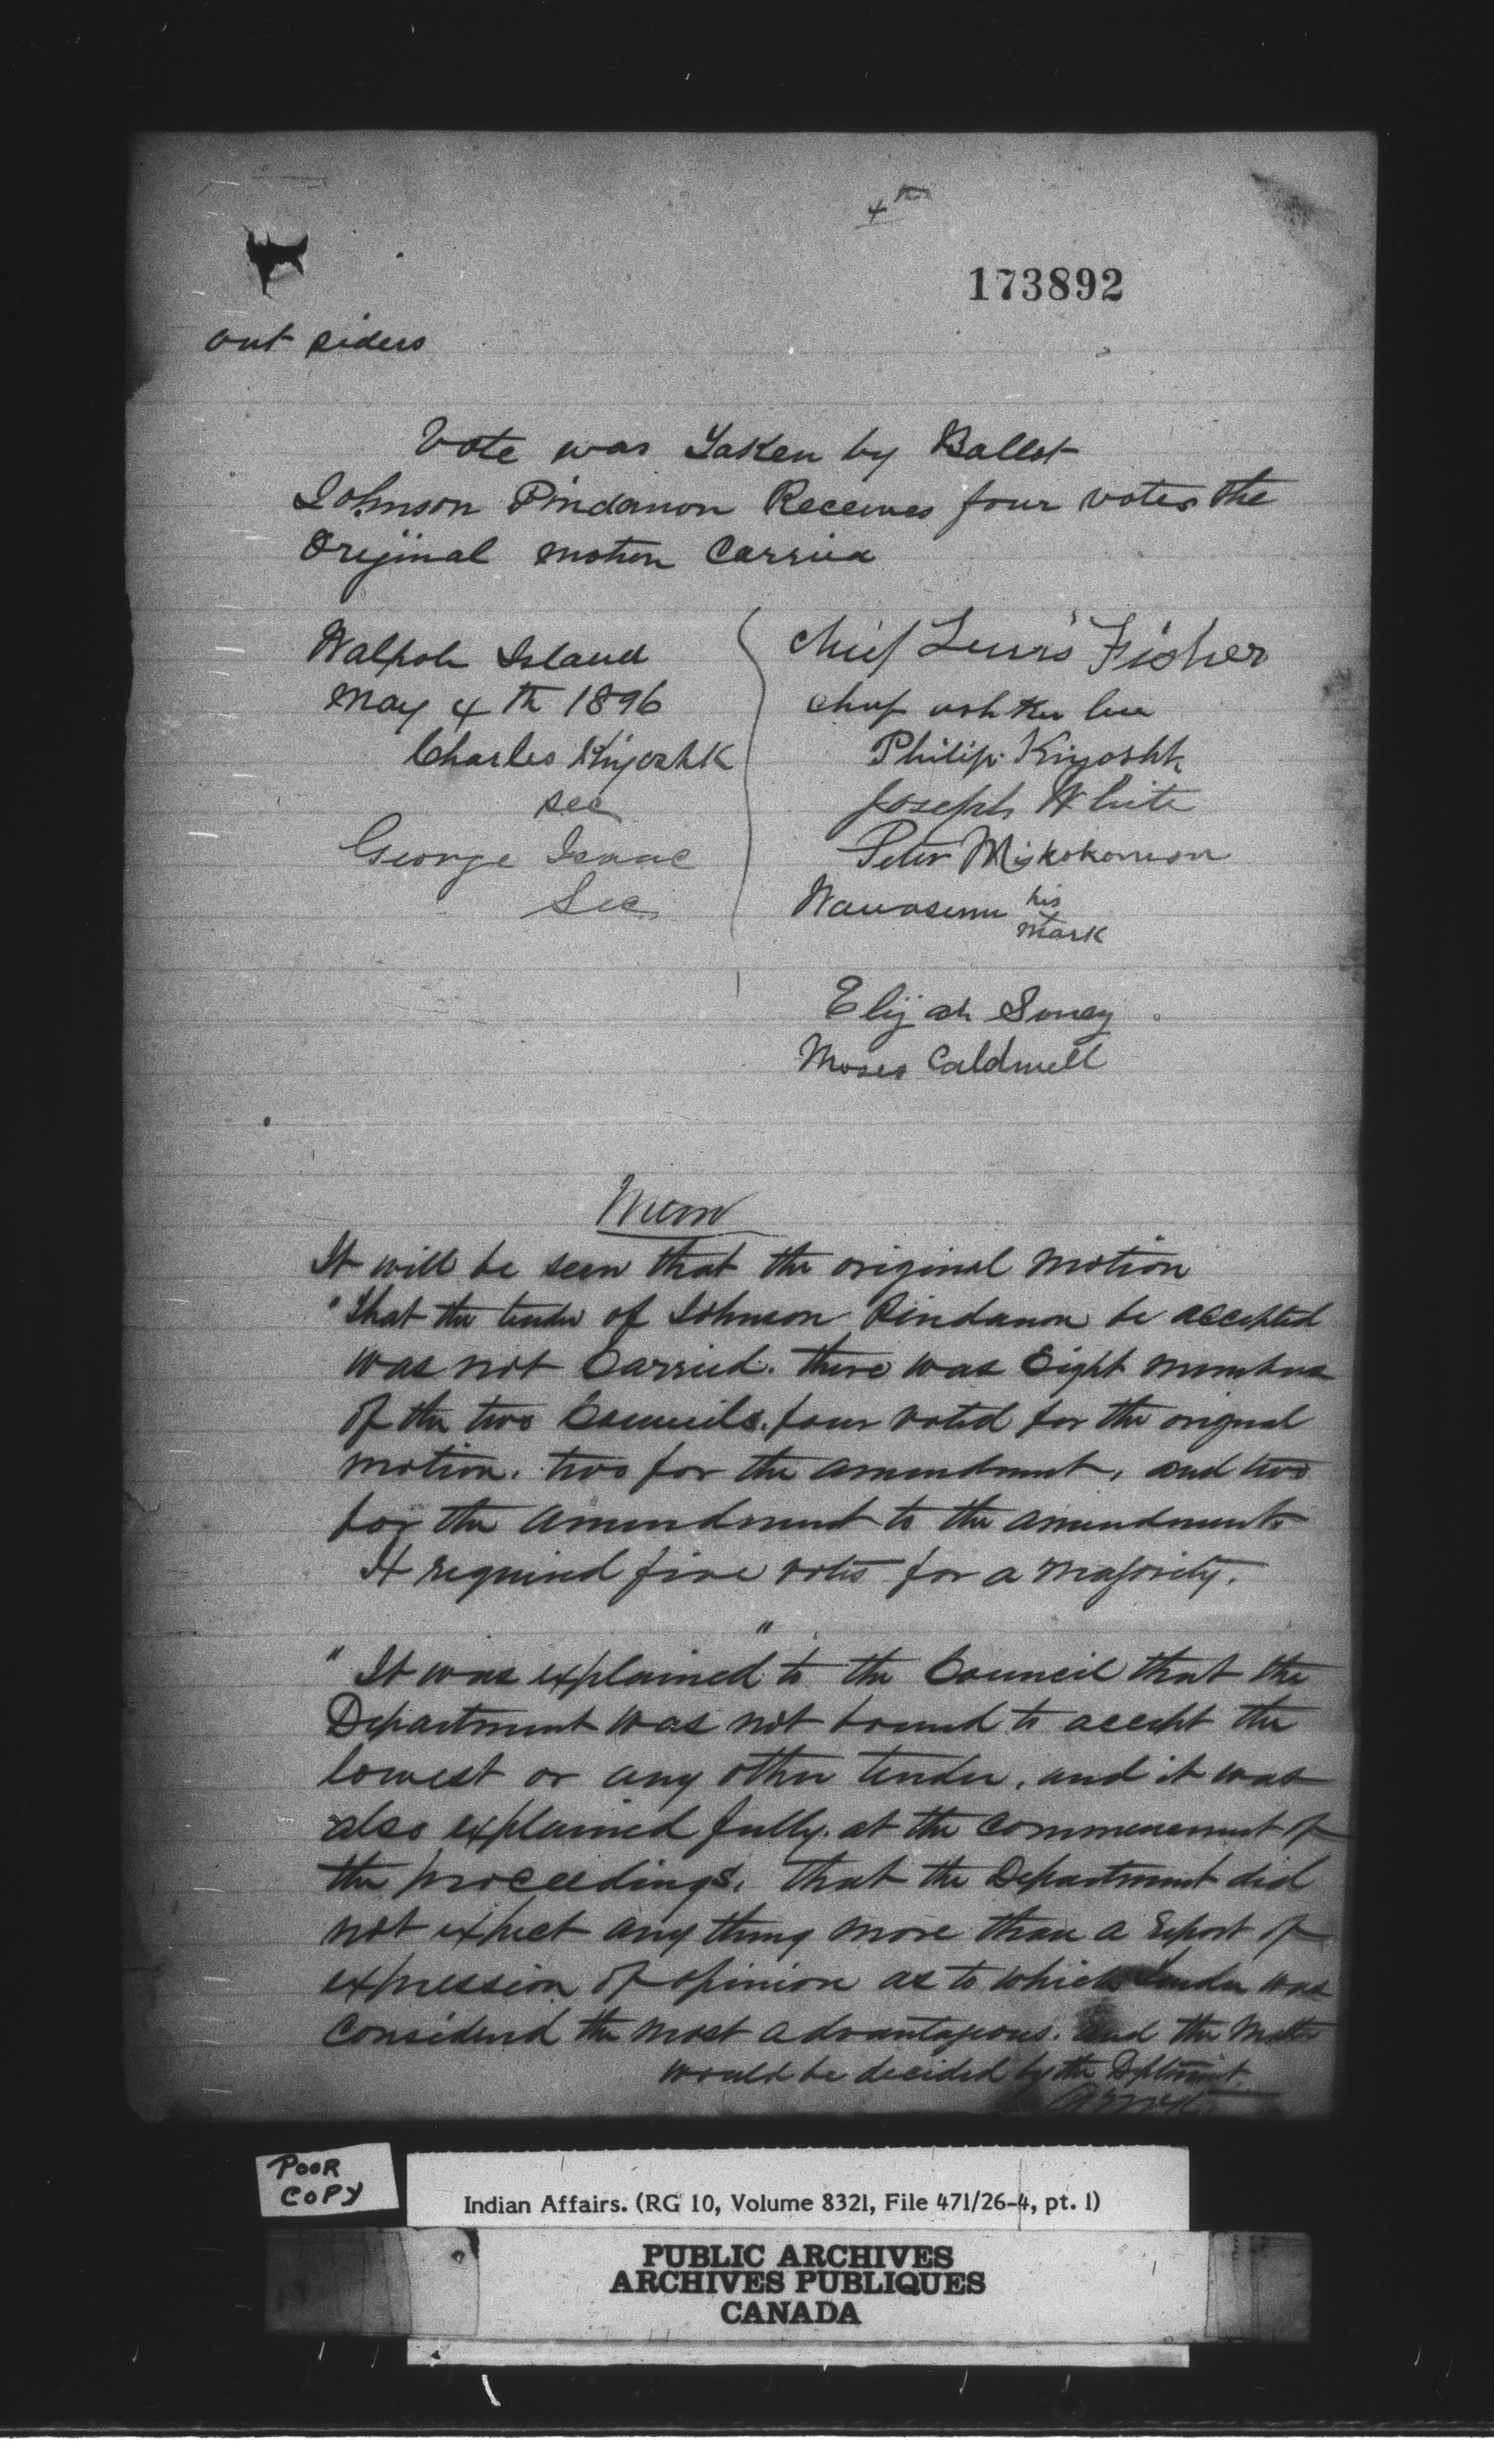 4th
173892
out siders
Vote was Taken by Ballot
Johnson Pindanon Receives four votes the
Orejinal motion Carried
Walpole Island
May 4th 1896
Charles Kiyoshk
sec
George Isaac
Sec
Chief Lewis Fisher
Chief
Philip Kiyoshk
Joseph White
Peter Miskokomon
Wawasenn his
mark
Elijah Soney
Moses Caldwell
Memo
It will be seen that the original motion
"That the tender of Johnson Pindanon be accepted
was not Carried. there was Eight members
of the two Councils. four voted for the original
motion. two for the amendment, and two
for the amendment to the amendment.
It required five votes for a majority.
"
" It was explained to the Council that the
Department was not bound to accept the
lowest or any other tender, and it was
also explained fully. at the commencement of
the proceedings, that the Department did
not expect any thing more than a Report of
expression of opinion as to which tender was
Considered the most advantageous. and the Matter
would be decided by the Dptment.
POOR
COPY
Indian Affairs. (RG 10, Volume 8321, File 471/26-4, pt. 1)
PUBLIC ARCHIVES
ARCHIVES PUBLIQUES
CANADA